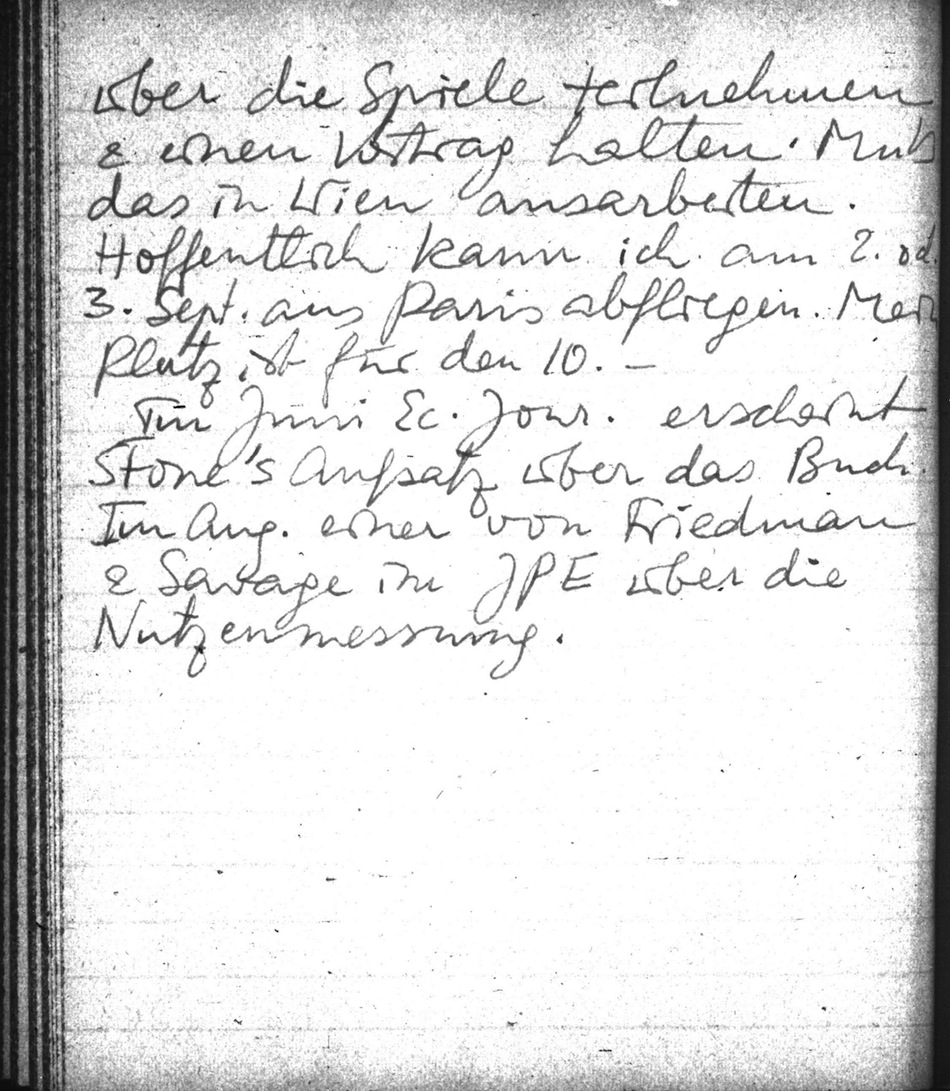 über die Spiele teilnehmen
& einen Vortrag halten. Muß
das in Wien ausarbeiten.
Hoffentlich kann ich am 2. od.
3. Sept. aus Paris abfliegen. Mein
Platz ist für den 10. –
Im Juni Ec. Jour. erscheint
Stone's Aufsatz über das Buch.
Im Aug. einer von Friedman
& Savage im JPE über die
Nutzenmessung.